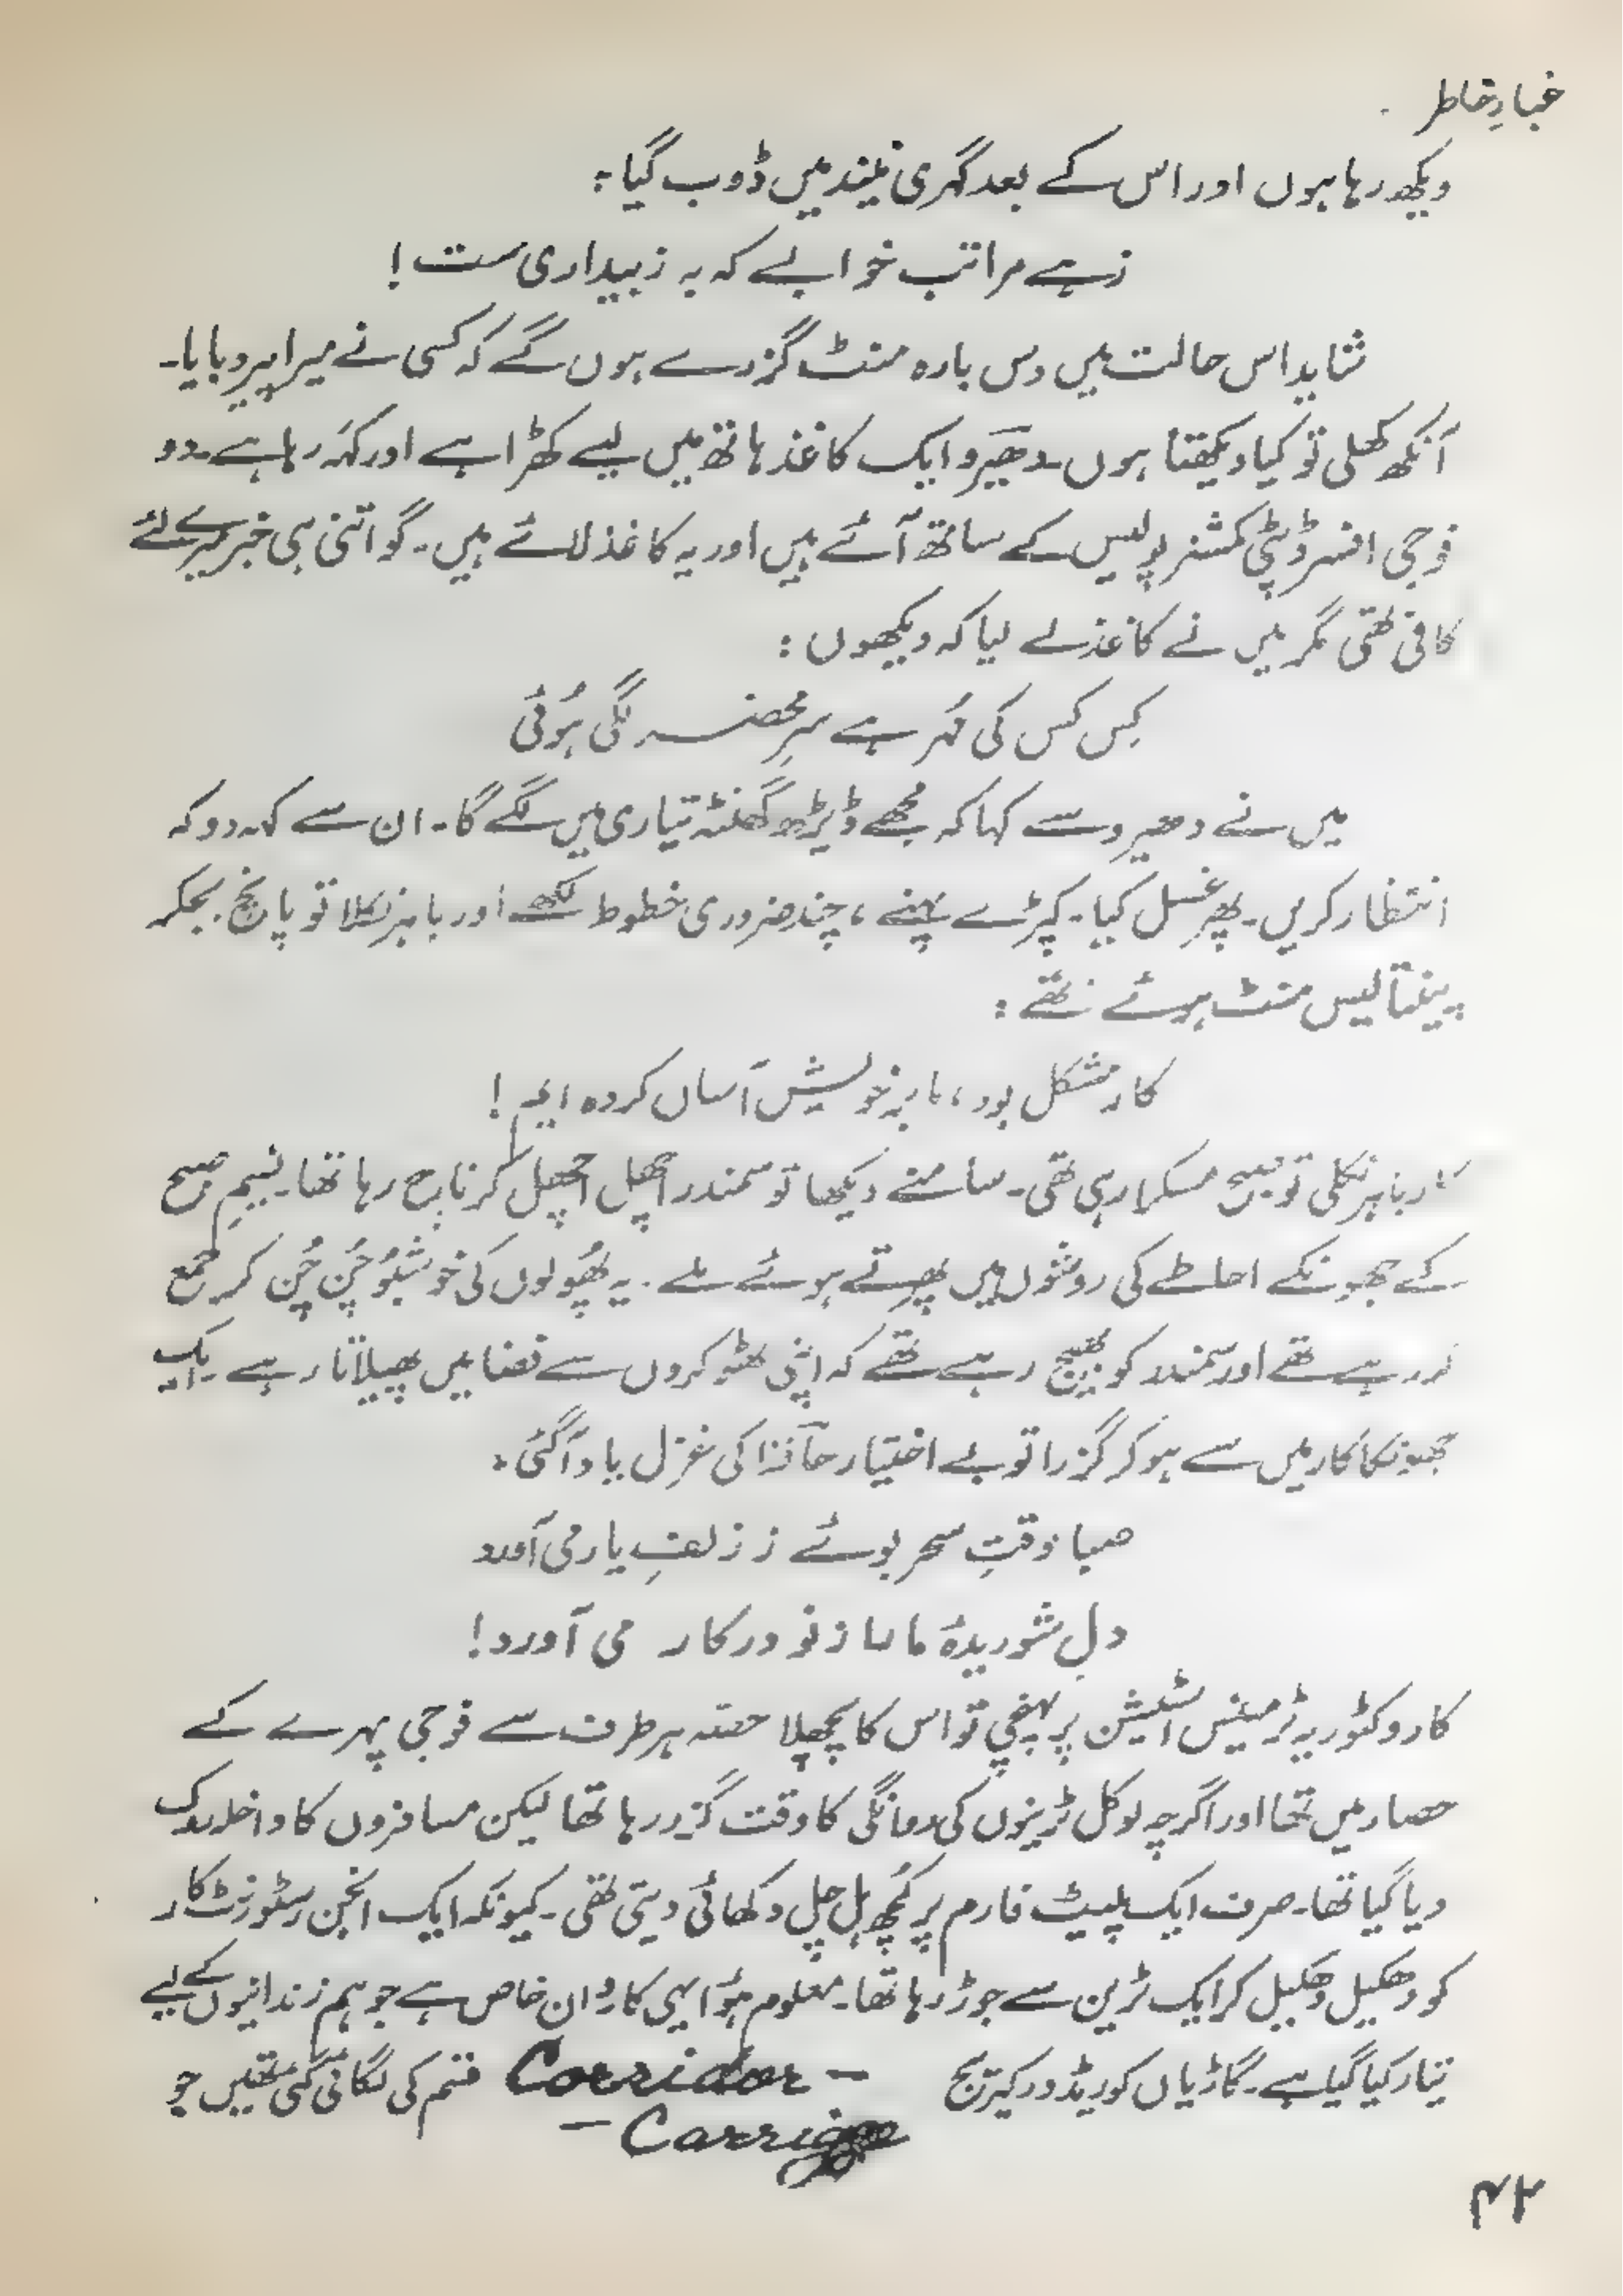 غبارِ خاطر
دیکھ رہا ہوں اور اس کے بعد گہری نیند میں ڈوب گیا:
زہے مراتب خوابے کہ بہ زبیداری ست!
شاید اس حالت میں دس بارہ منٹ گزرے ہوں گے کہ کسی نے میرا پیر دبایا۔
آنکھ کھلی تو کیا دیکھتا ہوں۔ دھیرو ایک کاغذ ہاتھ میں لیے کھڑا ہے اور کہہ رہا ہے۔ دو
فوجی افسر ڈپٹی کمشنر پولیس کے ساتھ آئے ہیں اور یہ کاغذ لائے ہیں۔ گو اتنی ہی خبر میرے لئے
کافی تھی مگر میں نے کاغذ لے لیا کہ دیکھوں:
کِس کس کی مُہر ہے سرِ محضر لگی ہُوئی
میں نے دھیرو سے کہا کہ مجھے ڈیڑھ گھنٹہ تیاری میں لگے گا۔ ان سے کہہ دو کہ
انتظار کریں۔ پھر غسل کیا۔ کپڑے پہنے، چند ضروری خطوط لکھے اور باہر نکلا تو پانچ بجکر
پینتالیس منٹ ہوئے تھے:
کار مشکل بود، ما بر خویش آساں کردہ ایم!
کار باہر نکلی تو صبح مسکرا رہی تھی۔ سامنے دیکھا تو سمندر اچھل اچھل کر ناچ رہا تھا۔ نسیمِ صبح
کے جھونکے احاطے کی روشوں میں پھرتے ہوئے ملے۔ یہ پھُولوں کی خوشبُو چُن چُن کر جمع
کر رہے تھے اور سمندر کو بھیج رہے تھے کہ اپنی ٹھوکروں سے فضا میں پھیلاتا رہے۔ ایک
جھونکا کار میں سے ہو کر گزرا تو بے اختیار حافظ کی غزل یاد آگئی:
صبا وقتِ سحر بوئے ز زلفِ یار می آورد
دلِ شوریدۂ ما را ز نو در کار می آورد!
کار وکٹوریہ ٹرمینس اسٹیشن پر پہنچی تو اس کا پچھلا حصّہ ہر طرف سے فوجی پہرے کے
حصار میں تھا اور اگرچہ لوکل ٹرینوں کی روانگی کا وقت گزر رہا تھا لیکن مسافروں کا داخلہ روک
دیا گیا تھا۔ صرف ایک پلیٹ فارم پر کُچھ ہل چل دکھائی دیتی تھی۔ کیونکہ ایک انجن رسٹورنٹ کار
کو دھکیل دھکیل کر ایک ٹرین سے جوڑ رہا تھا۔ معلوم ہُوا یہی کاروان خاص ہے جو ہم زندانیوں کے لیے
تیار کیا گیا ہے۔ گاڑیاں کوریڈور کیرتج Corridor - قسم کی لگائی گئی تھیں جو
- Carriage
۴۲